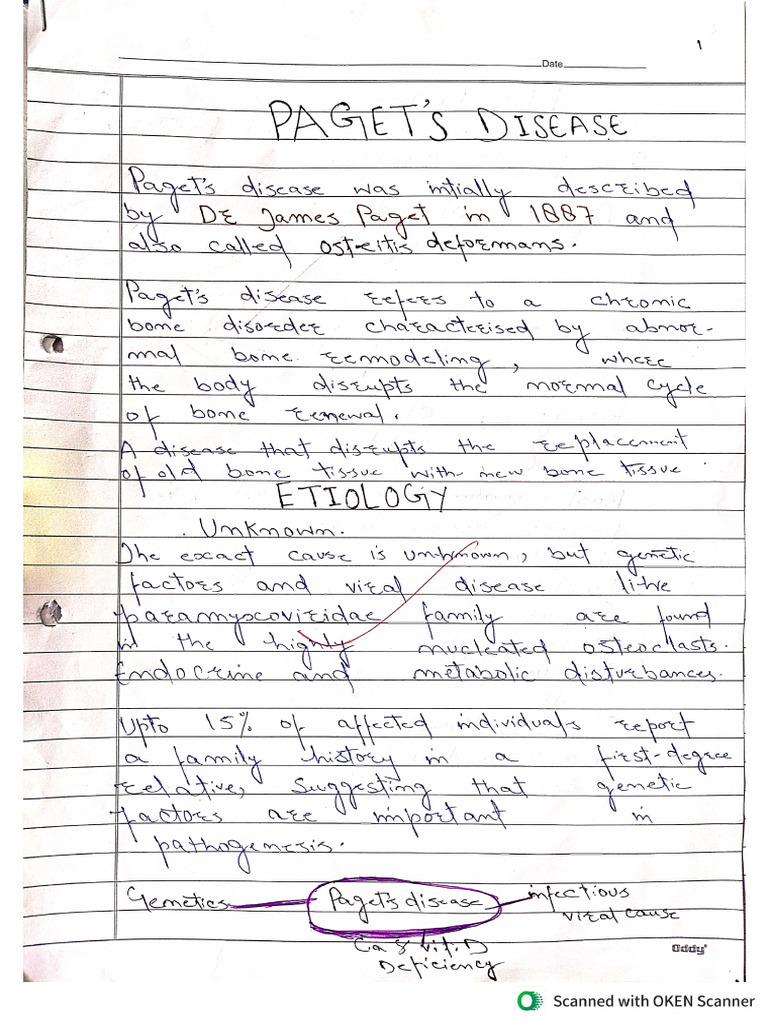 1
Date
PAGET'S DISEASE
Paget's disease was intially described
by Dr James Paget in 1887 and
also called osteitis deformans.
Paget's disease refers to a chronic
bone disorder characterised by abnor-
mal bone remodeling, where
the body disrupts the normal cycle
of bone renewal.
A disease that disrupts the replacement
of old bone tissue with new bone tissue
ETIOLOGY
. Unknown.
The exact cause is unknown, but genetic
factors and viral disease like
paramyxoviridae family are found
in the highly nucleated osteoclasts.
Endocrine and metabolic disturbances.
Upto 15% of affected individuals report
a family history in a first-degree
relative, suggesting that genetic
factors are important in
pathogenesis.
Genetics Paget's disease infectious
viral cause
Ca & Vit. D
Deficiency
Oddy
Scanned with OKEN Scanner